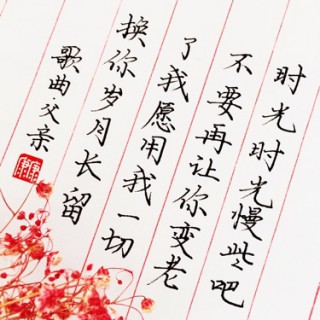 时光时光慢些吧
不要再让你变老
了我愿用我一切
换你岁月长留
歌曲·父亲